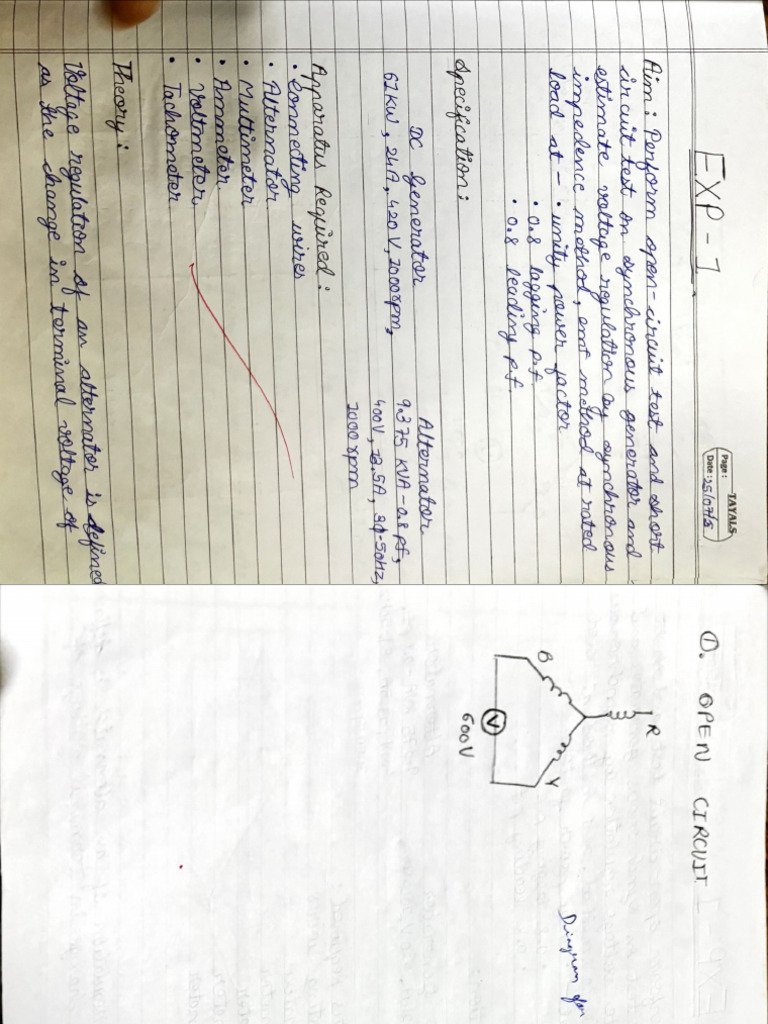 TAYALS
Page:
Date: 25/07/25
EXP-1
Aim: Perform open-circuit test and short
circuit test on synchronous generator and
estimate voltage regulation by synchronous
impedence method, emf method at rated
load at - • unity power factor
• 0.8 lagging p.f
• 0.8 leading p.f.
Specification:
DC Generator
Alternator
9.375 KVA-0.8 pf,
400V, 13.5A, 3φ-50Hz,
1000 rpm
Apparatus Required:
• Connecting wires
• Alternator
• Multimeter
• Ammeter
• Voltmeter
• Tachometer
Theory:
Voltage regulation of an alternator is defined
as the change in terminal voltage of
①. OPEN CIRCUIT
R
B
Y
V
600V
Diagram for